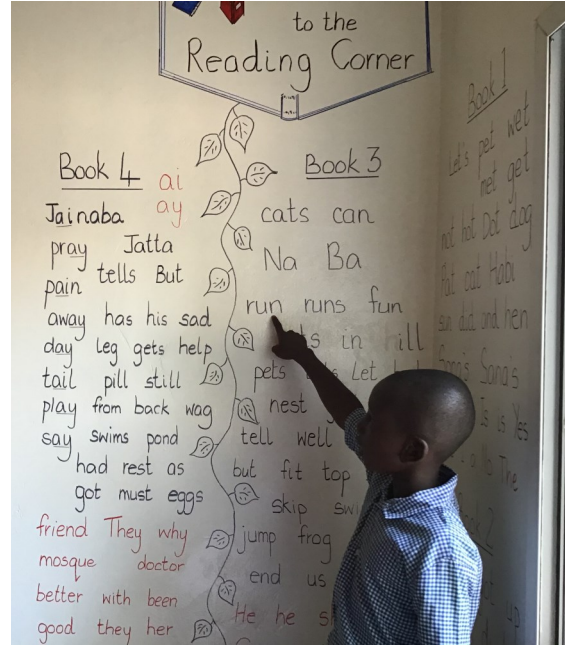 to the
Reading Corner
Book 4
ai
ay
Jainaba
pray Jatta
pain tells But
away has his sad
day leg gets help
tail pill still
play from back wag
say swims pond
had rest as
got must eggs
friend They why
mosque doctor
better with been
good they her
Book 3
cats can
Na Ba
run runs fun
in hill
pets Let
nest
tell well
but fit top
skip
jump frog
end us
He he
Book 1
Let's pet wet
met get
not hot Dot dog
Pat cat Habi
sun did and hen
Sana's
Is is Yes
The